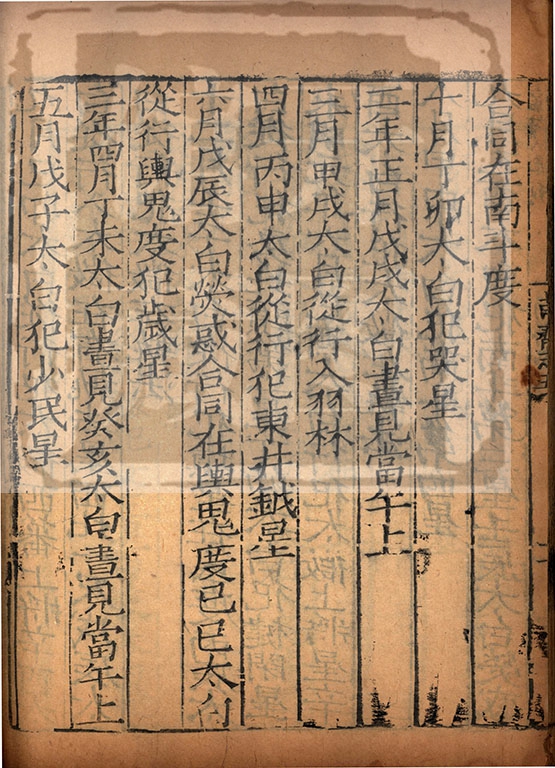 合同在南斗度
十月丁卯太白犯哭星
五年正月戊戌太白晝見當午上
三月甲戌太白從行入羽林
四月丙申太白從行犯東井鉞星
六月戊辰太白熒惑合同在輿鬼度己巳太白
從行輿鬼度犯歲星
三年四月丁未太白晝見癸亥太白晝見當午上
五月戊子太白犯少民星